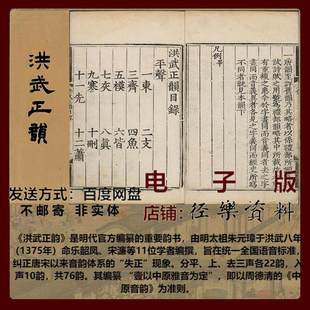 洪武正韻
凡例畢
洪武正韻目錄
平聲
一東 二支
三齊 四魚
五模 六皆
七灰 八真
九寒 十刪
十一先 十二蕭
电子版
发送方式：百度网盘
不邮寄 非实体
店铺：径樂资料
《洪武正韵》是明代官方编纂的重要韵书，由明太祖朱元璋于洪武八年
（1375年）命乐韶凤、宋濂等11位学者编撰，旨在统一全国语音标准，
纠正唐宋以来音韵体系的“失正”现象。分平、上、去三声各22韵，入
声10韵，共76韵。其编纂“壹以中原雅音为定”，即以周德清的《中
原音韵》为准则。